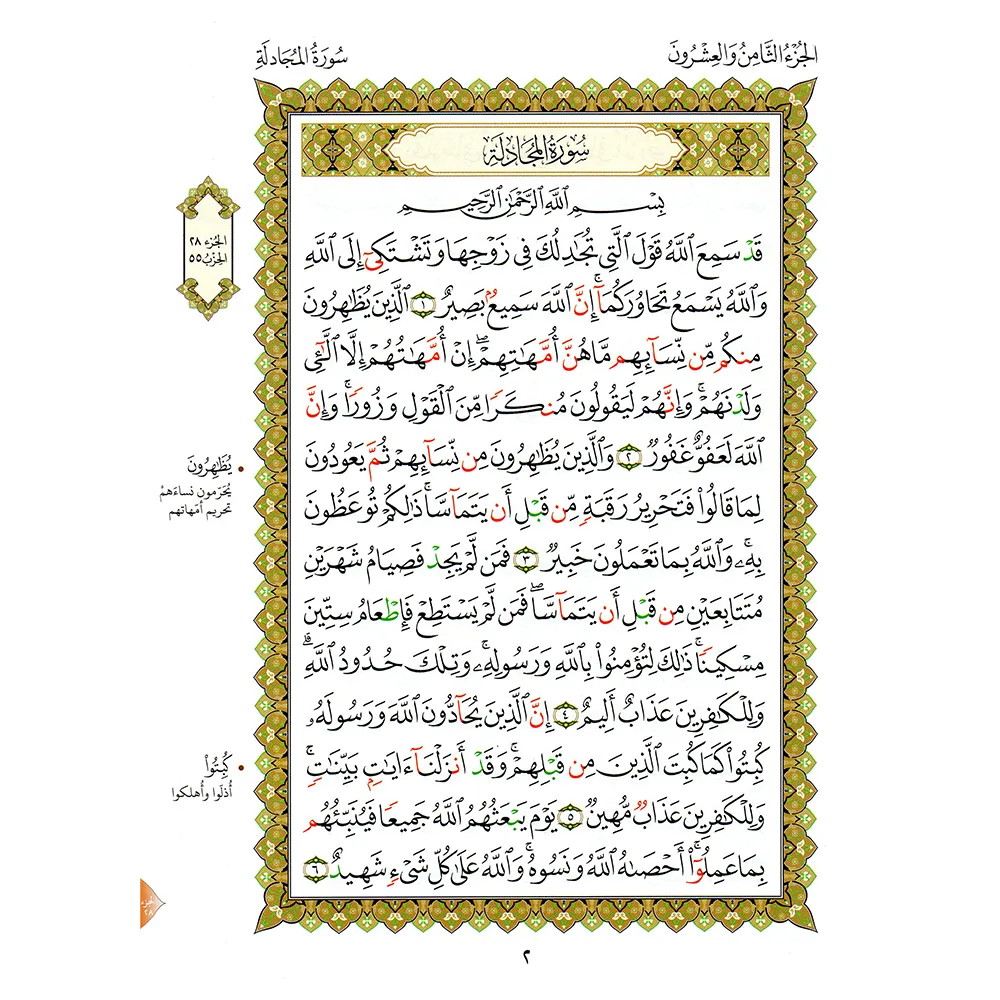 الجُزْءُ الثَّامِنُ وَالعِشْرُونَ
سُورَةُ المُجَادلَةِ
سُورَةُ المُجَادلَةِ
بِسْمِ ٱللَّهِ ٱلرَّحْمَٰنِ ٱلرَّحِيمِ
قَدْ سَمِعَ ٱللَّهُ قَوْلَ ٱلَّتِي تُجَٰدِلُكَ فِي زَوْجِهَا وَتَشْتَكِيٓ إِلَى ٱللَّهِ
وَٱللَّهُ يَسْمَعُ تَحَاوُرَكُمَآۚ إِنَّ ٱللَّهَ سَمِيعُۢ بَصِيرٌ ١ ٱلَّذِينَ يُظَٰهِرُونَ
مِنكُم مِّن نِّسَآئِهِم مَّا هُنَّ أُمَّهَٰتِهِمْۖ إِنْ أُمَّهَٰتُهُمْ إِلَّا ٱلَّٰٓـِٔي
وَلَدْنَهُمْۚ وَإِنَّهُمْ لَيَقُولُونَ مُنكَرًا مِّنَ ٱلْقَوْلِ وَزُورًاۚ وَإِنَّ
ٱللَّهَ لَعَفُوٌّ غَفُورٌ ٢ وَٱلَّذِينَ يُظَٰهِرُونَ مِن نِّسَآئِهِمْ ثُمَّ يَعُودُونَ
لِمَا قَالُواْ فَتَحْرِيرُ رَقَبَةٍ مِّن قَبْلِ أَن يَتَمَآسَّاۚ ذَٰلِكُمْ تُوعَظُونَ
بِهِۦۚ وَٱللَّهُ بِمَا تَعْمَلُونَ خَبِيرٌ ٣ فَمَن لَّمْ يَجِدْ فَصِيَامُ شَهْرَيْنِ
مُتَتَابِعَيْنِ مِن قَبْلِ أَن يَتَمَآسَّاۖ فَمَن لَّمْ يَسْتَطِعْ فَإِطْعَامُ سِتِّينَ
مِسْكِينًاۚ ذَٰلِكَ لِتُؤْمِنُواْ بِٱللَّهِ وَرَسُولِهِۦۚ وَتِلْكَ حُدُودُ ٱللَّهِۗ
وَلِلْكَٰفِرِينَ عَذَابٌ أَلِيمٌ ٤ إِنَّ ٱلَّذِينَ يُحَآدُّونَ ٱللَّهَ وَرَسُولَهُۥ
كُبِتُواْ كَمَا كُبِتَ ٱلَّذِينَ مِن قَبْلِهِمْۚ وَقَدْ أَنزَلْنَآ ءَايَٰتٍۭ بَيِّنَٰتٍۚ
وَلِلْكَٰفِرِينَ عَذَابٌ مُّهِينٌ ٥ يَوْمَ يَبْعَثُهُمُ ٱللَّهُ جَمِيعًا فَيُنَبِّئُهُم
بِمَا عَمِلُوٓاْۚ أَحْصَىٰهُ ٱللَّهُ وَنَسُوهُۚ وَٱللَّهُ عَلَىٰ كُلِّ شَيْءٍ شَهِيدٌ ٦
الجُزء ٢٨
الحِزب ٥٥
يُظَٰهِرُونَ
يُحَرّمون نساءَهمْ
تحريم أمّهاتهم
كُبِتُواْ
أُذلّوا وأُهلكوا
الجزء
٢٨
٢